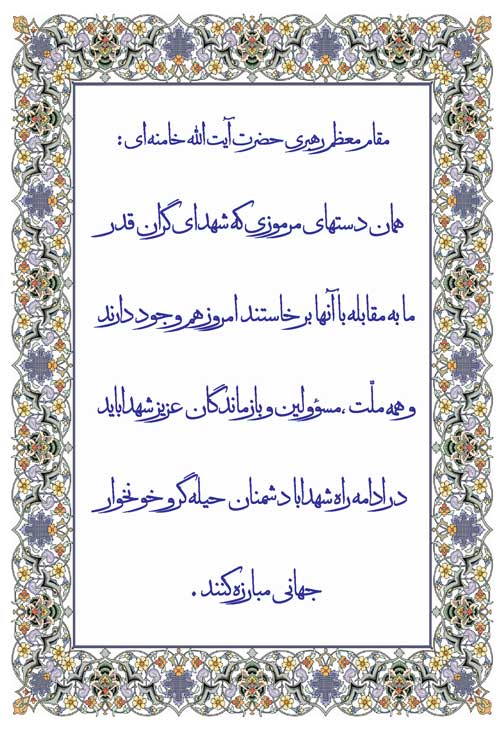 مقام معظم رهبری حضرت آیت الله خامنه ای :
همان دستهای مرموزی که شهدای گران قدر
ما به مقابله با آنها برخاستند امروز هم وجود دارند
و همه ملّت ،مسؤولین و بازماندگان عزیز شهدا باید
در ادامه راه شهدا با دشمنان حیله گر و خونخوار
جهانی مبارزه کنند .